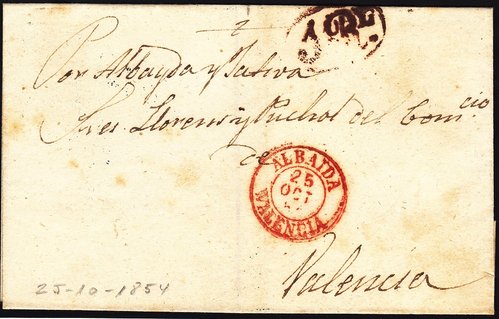 Por Albayda y Jativa
Sres Llorens y Puchol del Comcio
de
ALBAIDA
25
OCT
VALENCIA
Valencia
25-10-1854